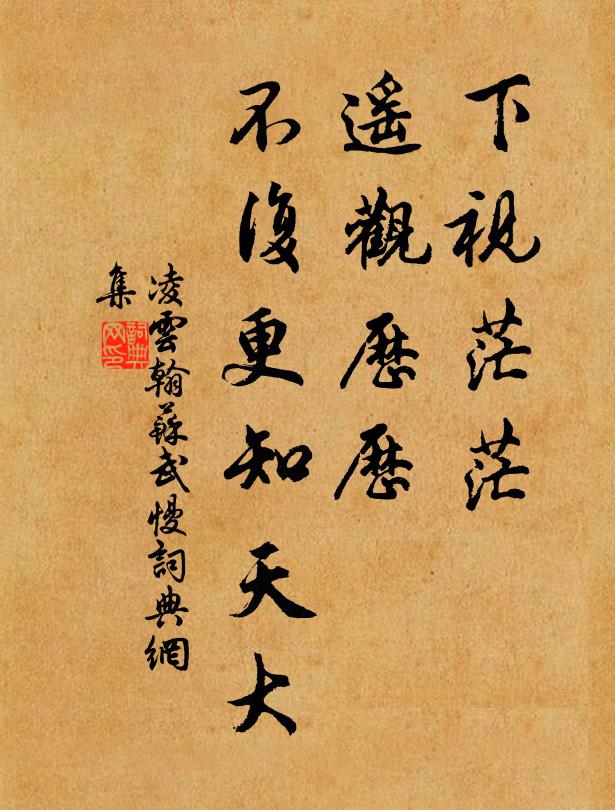 下視茫茫
遥觀歷歷
不復更知天大
凌雲翰蘇武慢詞典網
集
詞典
网印